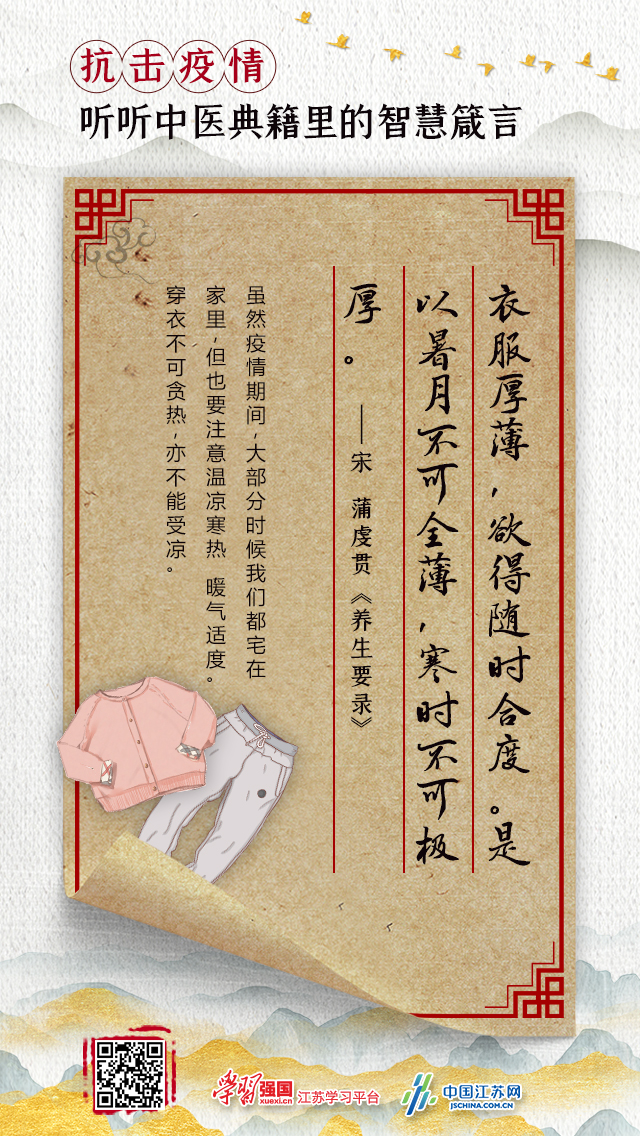 抗击疫情
听听中医典籍里的智慧箴言
衣服厚薄，欲得随时合度。是
以暑月不可全薄，寒时不可极
厚。
——宋 蒲虔贯《养生要录》
虽然疫情期间，大部分时候我们都宅在
家里，但也要注意温凉寒热 暖气适度。
穿衣不可贪热，亦不能受凉。
学习强国
xuexi.cn
江苏学习平台
中国江苏网
JSCHINA.COM.CN